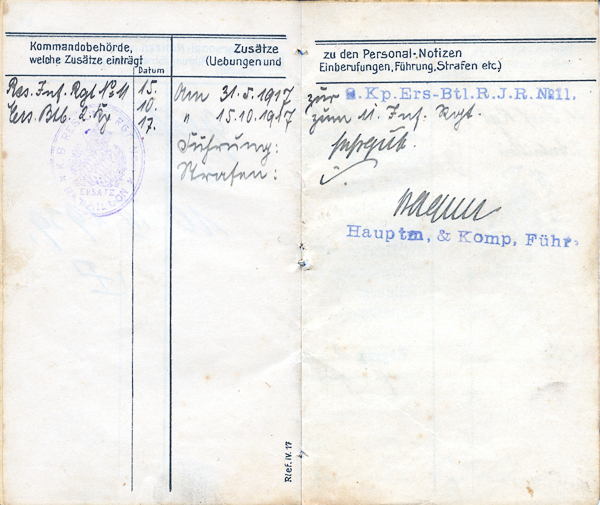 Kommandobehörde,
welche Zusätze einträgt
Datum
Zusätze
(Uebungen und
zu den Personal-Notizen
Einberufungen, Führung, Strafen etc.)
Res. Inf. Rgt No 11
Ers. Btl. 2. Kp
15.
10.
17.
Am 31.5.1917 zur 2. Kp. Ers-Btl. R.J.R. No 11.
" 15.10.1917 zum 11. Inf. Rgt.
Führung: sehr gut.
Strafen: ./.
K.B. RES.
ERSATZ
BATAILLON
Hauptm, & Komp, Führ.
Rief. IV. 17